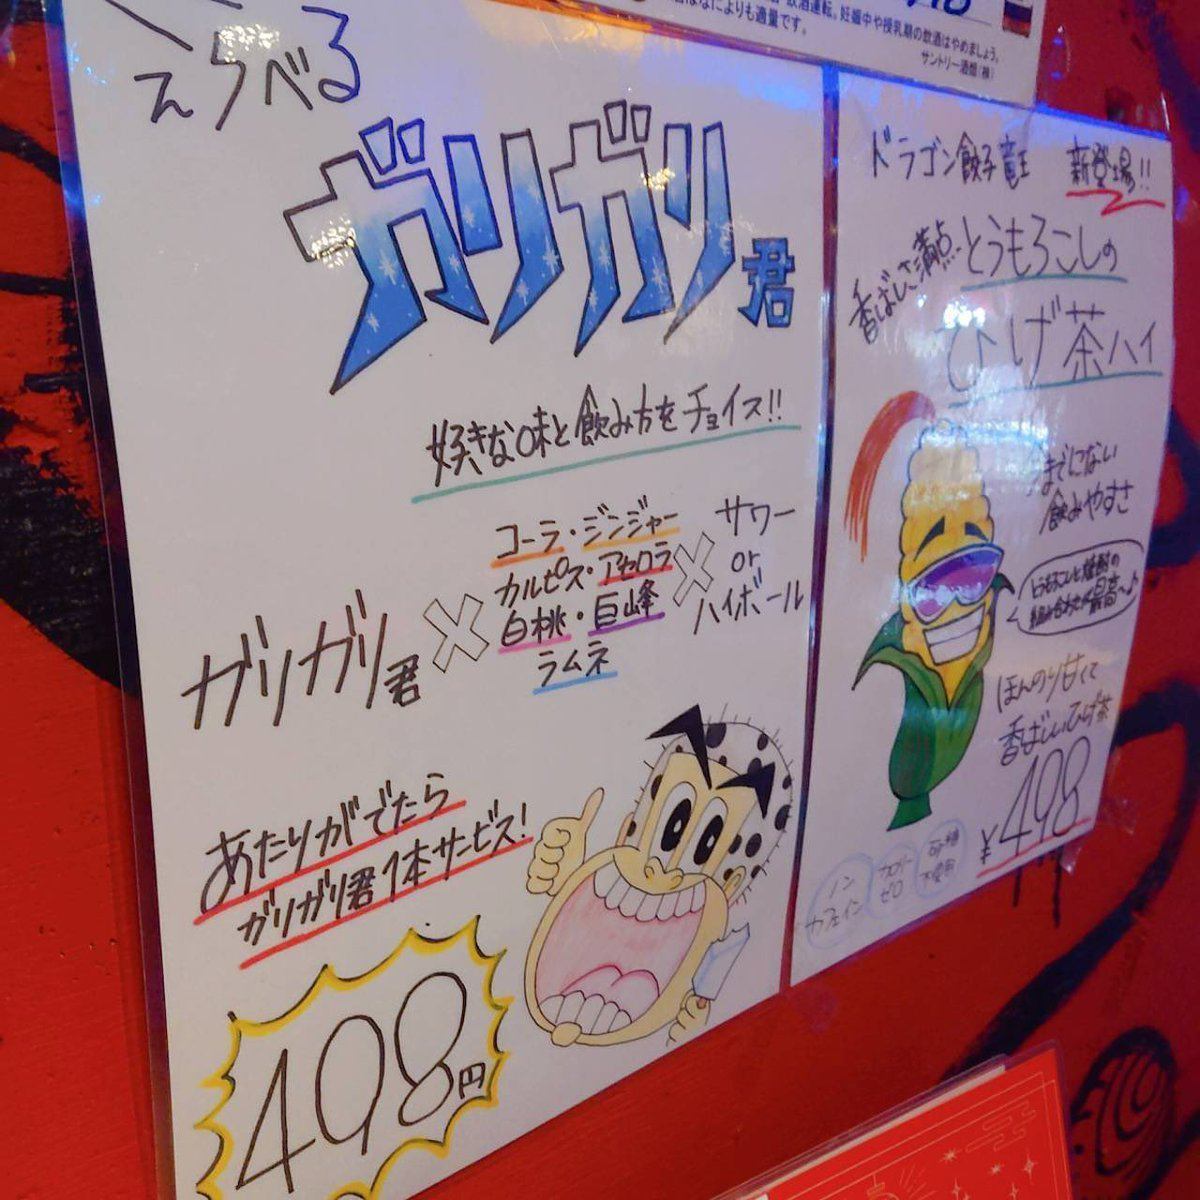 えらべる
ガリガリ君
好きな味と飲み方をチョイス!!
ガリガリ君
×
コーラ・ジンジャー
カルピス・アセロラ
白桃・巨峰
ラムネ
×
サワー
or
ハイボール
あたりがでたら
ガリガリ君1本サービス!
498円
飲酒運転。妊娠中や授乳期の飲酒はやめましょう。
なによりも適量です。
サントリー酒類(株)
ドラゴン餃子竜王 新登場!!
香ばしさ満点
とうもろこしの
ひげ茶ハイ
までにない
飲みやすさ
とうもろこしと焼酎の
組み合わせが最高〜♪
ほんのり甘くて
香ばしいひげ茶
¥498
ノン
カフェイン
カロリー
ゼロ
砂糖
不使用